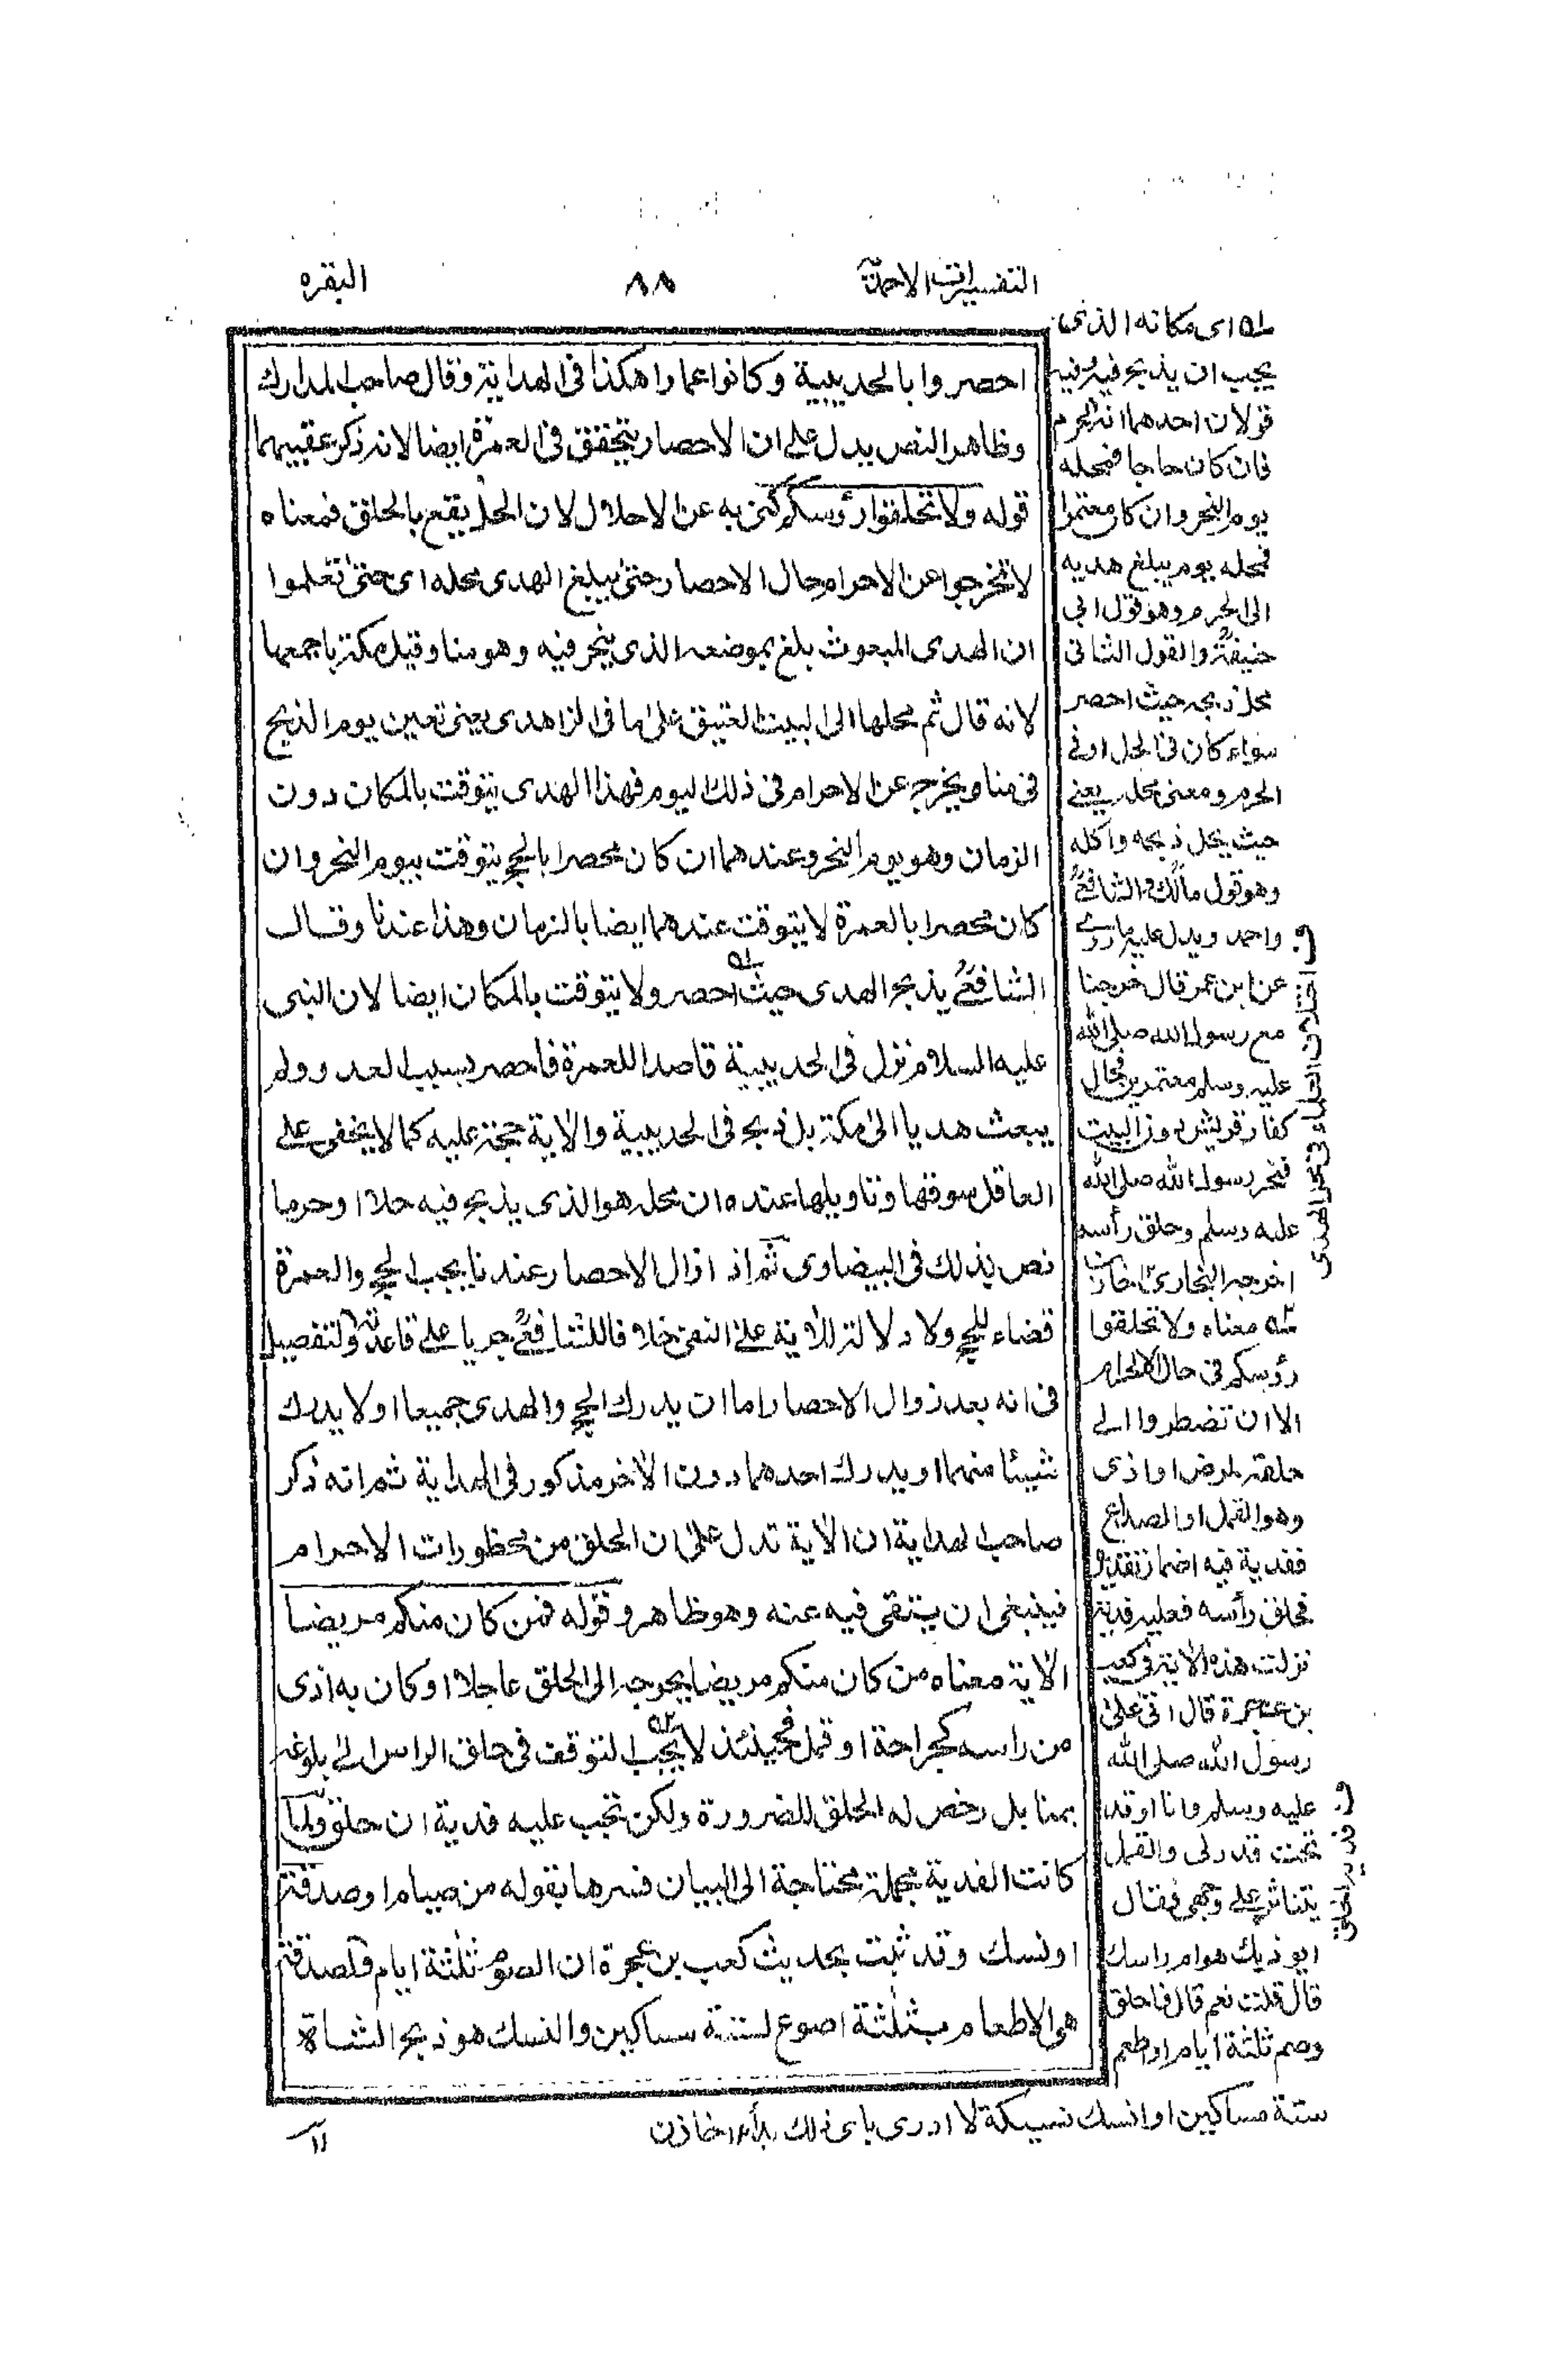 التفسيرات الاحمدية
٨٨
البقره
احصروا بالحديبية وكانوا عمارا هكذا فى الهداية وقال صاحب المدارك
وظاهر النص يدل على ان الاحصار يتحقق فى العمرة ايضا لانه ذكر عقيبهما
قوله ولا تحلقوا رؤسكم كنى به عن الاحلال لان الحل يقع بالحلق فمعناه
لا تخرجوا عن الاحرام حال الاحصار حتى يبلغ الهدى محله اى حتى تعلموا
ان الهدى المبعوث بلغ بموضعه الذى ينحر فيه وهو منا وقيل مكة باجمعها
لانه قال ثم محلها الى البيت العتيق على ما فى الزاهدى يعنى تعين يوم الذبح
فى منا ويخرج عن الاحرام فى ذلك اليوم فهذا الهدى يتوقت بالمكان دون
الزمان وهو يوم النحر وعندهما ان كان محصرا بالحج يتوقت بيوم النحر وان
كان محصرا بالعمرة لا يتوقت عندهما ايضا بالزمان وهذا عندنا وقال
الشافعى يذبح الهدى حيث احصر ولا يتوقت بالمكان ايضا لان النبى
عليه السلام نزل فى الحديبية قاصدا للعمرة فاحصر بسبب العدو ولم
يبعث هديا الى مكة بل ذبح فى الحديبية والاية حجة عليه كما لا يخفى على
العاقل سوقها وتاويلها عنده ان محله هو الذى يذبح فيه حلا او حرما
نص بذلك فى البيضاوى ثم اذا زال الاحصار عندنا يجب الحج والعمرة
قضاء للحج ولا دلالة للاية على النفى خلافا للشافعى جريا على قاعدته والتفصيل
فى انه بعد زوال الاحصار اما ان يدرك الحج والهدى جميعا او لا يدرك
شيئا منهما او يدرك احدهما دون الاخر مذكور فى الهداية ثم انه ذكر
صاحب الهداية ان الاية تدل على ان الحلق من محظورات الاحرام
فينبغى ان يتقى فيه عنه وهو ظاهر وقوله فمن كان منكم مريضا
الاية معناه من كان منكم مريضا يحوجه الى الحلق عاجلا او كان به اذى
من راسه كجراحة او قمل فحينئذ لا يجب التوقف فى حلق الراس الى بلوغه
بمنا بل رخص له الحلق للضرورة ولكن تجب عليه فدية ان حلق ولما
كانت الفدية مجملة محتاجة الى البيان فسرها بقوله من صيام او صدقة
او نسك وقد ثبت بحديث كعب بن عجرة ان الصوم ثلثة ايام والصدقة
هو الاطعام بثلثة اصوع لستة مساكين والنسك هو ذبح الشاة
له اى مكانه الذى
يجب ان يذبح فيه وفيه
قولان احدهما انه الحرم
فان كان حاجا فمحله
يوم النحر وان كان معتمرا
فمحله يوم يبلغ هديه
الى الحرم وهو قول ابى
حنيفة والقول الثانى
محل ذبحه حيث احصر
سواء كان فى الحل او فى
الحرم ومعنى محله يعنى
حيث يحل ذبحه واكله
وهو قول مالك والشافعى
واحمد ويدل عليه ما روى
عن ابن عمر قال خرجنا
مع رسول الله صلى الله
عليه وسلم معتمرين فحال
كفار قريش دون البيت
فنحر رسول الله صلى الله
عليه وسلم وحلق رأسه
اخرجه البخارى خازن
معناه ولا تحلقوا
رؤسكم فى حال الاحرام
الا ان تضطروا الى
حلقه لمرض او اذى
وهو القمل او الصداع
ففدية فيه اضمار تقديره
فحلق رأسه فعليه فدية
نزلت هذه الاية فى كعب
بن عجرة قال اتى على
رسول الله صلى الله
عليه وسلم وانا اوقد
تحت قدر لى والقمل
يتناثر على وجهى فقال
ايوذيك هوام راسك
قال قلت نعم قال فاحلق
وصم ثلثة ايام او اطعم
ستة مساكين او انسك نسيكة لا ادرى باى ذلك بدأ خازن
ف اختلاف العلماء فى نحر الهدى
ف فدية الحلق